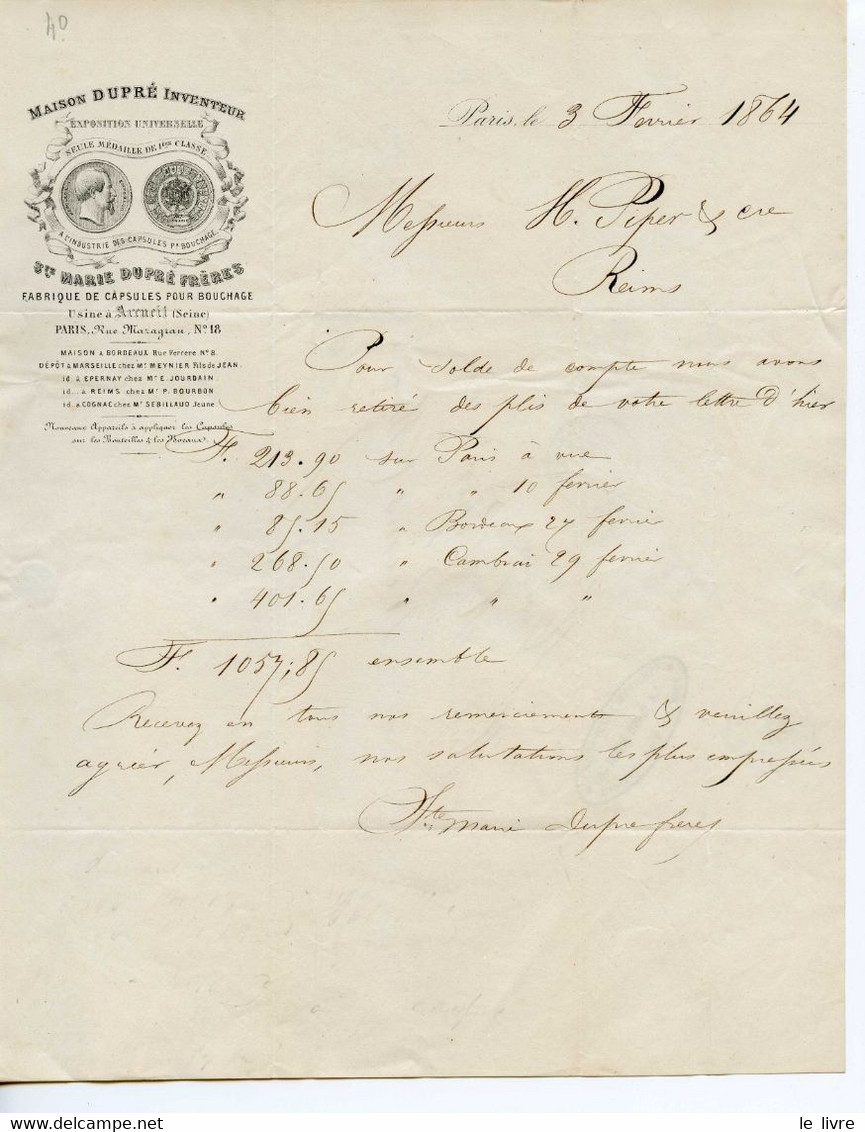 40
MAISON DUPRÉ INVENTEUR
EXPOSITION UNIVERSELLE
SEULE MÉDAILLE DE 1ère CLASSE
A L'INDUSTRIE DES CAPSULES Pr BOUCHAGE
STE MARIE DUPRÉ FRÈRES
FABRIQUE DE CAPSULES POUR BOUCHAGE
Usine à Arcueil (Seine)
PARIS, Rue Mazagran, No 18
MAISON à BORDEAUX Rue Ferrere. No 8.
DÉPÔT à MARSEILLE chez Mr MEYNIER Fils de JEAN.
id. à EPERNAY chez Mr E. JOURDAIN.
id. à REIMS chez Mr P. BOURBON
id. à COGNAC chez Mr SEBILLAUD Jeune
Nouveaux Appareils à appliquer les Capsules
sur les Bouteilles & les Bocaux.
Paris, le 3 Fevrier 1864
Messieurs H. Piper & cie
Reims
Pour solde de compte nous avons
bien retiré des plis de votre lettre d'hier
F. 213.90 sur Paris à vue
" 88.65 " " 10 fevrier
" 85.15 " Bordeaux 27 fevrier
" 268.50 " Cambrai 29 fevrier
" 401.65 " " "
F. 1057,85 ensemble
Recevez en tous nos remerciements & veuillez
agréer, Messieurs, nos salutations les plus empressées
Ste Marie Dupré frères
le livre